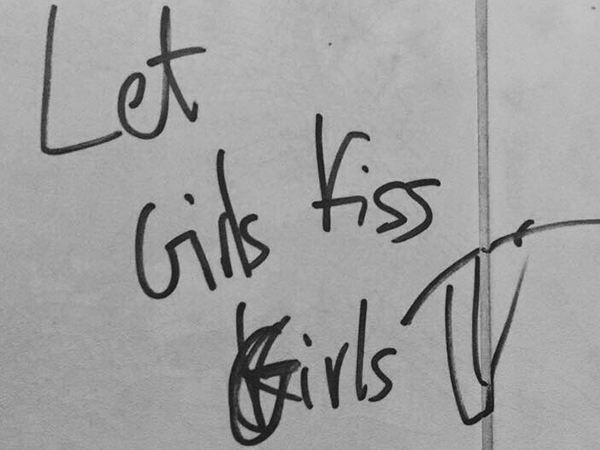 Let
Girls Kiss
Girls